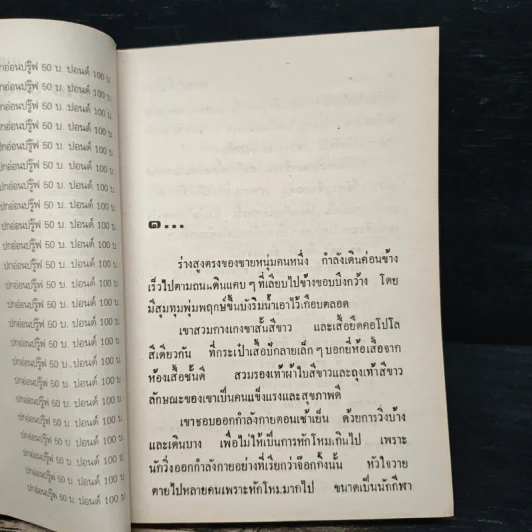 กอ่อนปรู๊ฟ 50 บ. ปอนด์ 100 บ
ปกอ่อนปรู๊ฟ 50 บ. ปอนด์ 100 บ
ปกอ่อนปรู๊ฟ 50 บ. ปอนด์ 100 บ
ปกอ่อนปรู๊ฟ 50 บ. ปอนด์ 100 บ
ปกอ่อนปรู๊ฟ 50 บ. ปอนด์ 100 บ
ปกอ่อนปรู๊ฟ 50 บ. ปอนด์ 100 บ
ปกอ่อนปรู๊ฟ 50 บ. ปอนด์ 100 บ
ปกอ่อนปรู๊ฟ 50 บ. ปอนด์ 100 บ
ปกอ่อนปรู๊ฟ 50 บ. ปอนด์ 100 บ
ปกอ่อนปรู๊ฟ 50 บ. ปอนด์ 100 บ
ปกอ่อนปรู๊ฟ 50 บ. ปอนด์ 100 บ
ปกอ่อนปรู๊ฟ 50 บ. ปอนด์ 100 บ
ปกอ่อนปรู๊ฟ 50 บ. ปอนด์ 100 บ
ปกอ่อนปรู๊ฟ 50 บ. ปอนด์ 100 บ
ปกอ่อนปรู๊ฟ 50 บ. ปอนด์ 100 บ
ปกอ่อนปรู๊ฟ 50 บ. ปอนด์ 100 บ
ปกอ่อนปรู๊ฟ 50 บ. ปอนด์ 100 บ
ปกอ่อนปรู๊ฟ 50 บ. ปอนด์ 100 บ
ปกอ่อนปรู๊ฟ 50 บ. ปอนด์ 100 บ
ปกอ่อนปรู๊ฟ 50 บ. ปอนด์ 100 บ
ปกอ่อนปรู๊ฟ 50 บ. ปอนด์ 100 บ
ปกอ่อนปรู๊ฟ 50 บ. ปอนด์ 100 บ
๑...
ร่างสูงตรงของชายหนุ่มคนหนึ่ง กำลังเดินค่อนข้าง
เร็วไปตามถนนดินแคบ ๆ ที่เลียบไปข้างขอบบึงกว้าง โดย
มีสุมทุมพุ่มพฤกษ์ขึ้นบังริมน้ำเอาไว้เกือบตลอด
เขาสวมกางเกงขาสั้นสีขาว และเสื้อยืดคอโปโล
สีเดียวกัน ที่กระเป๋าเสื้อปักลายเล็ก ๆ บอกยี่ห้อเสื้อจาก
ห้องเสื้อชั้นดี สวมรองเท้าผ้าใบสีขาวและถุงเท้าสีขาว
ลักษณะของเขาเป็นคนแข็งแรงและสุขภาพดี
เขาชอบออกกำลังกายตอนเช้าเย็น ด้วยการวิ่งบ้าง
และเดินบาง เพื่อไม่ให้เป็นการหักโหมเกินไป เพราะ
นักวิ่งออกกำลังกายอย่างที่เรียกว่าจ๊อกกิ้งนั้น หัวใจวาย
ตายไปหลายคนเพราะหักโหมมากไป ขนาดเป็นนักกีฬา